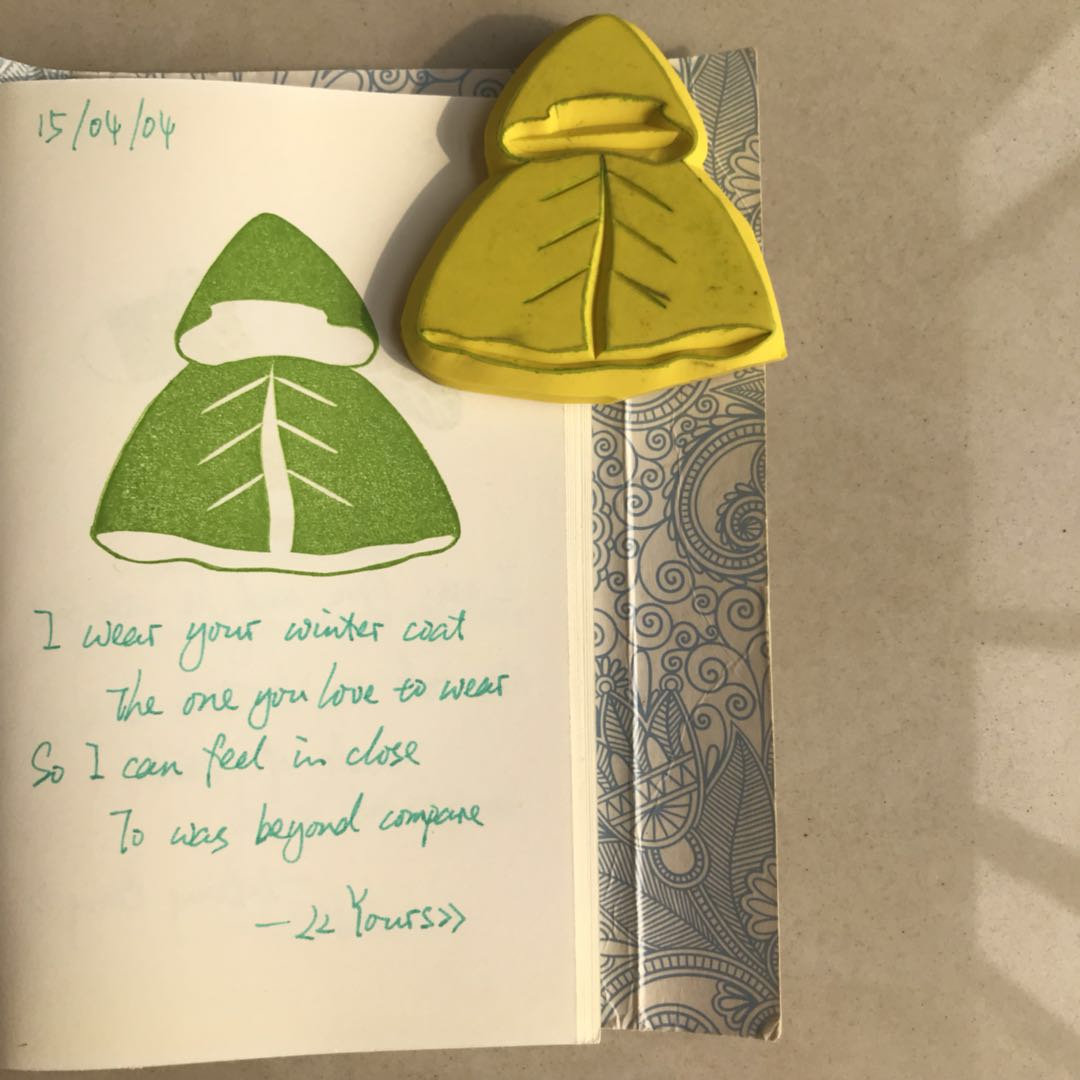 15/04/04
I wear your winter coat
The one you love to wear
So I can feel in close
To was beyond compare
—《Yours》